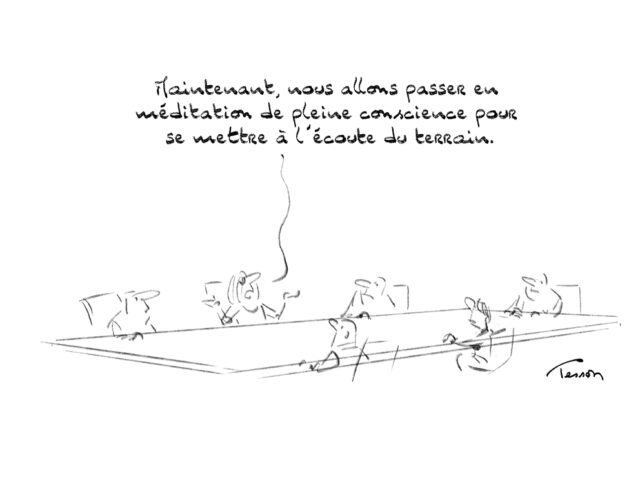 Maintenant, nous allons passer en
méditation de pleine conscience pour
se mettre à l'écoute du terrain.
Tesson